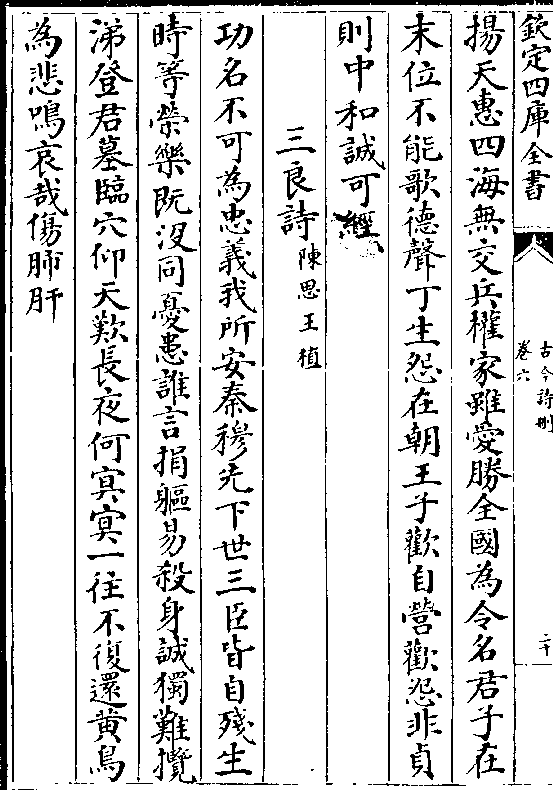 欽定四庫全書
古今詩刪
卷六
二十
揚天惠四海無交兵權家雖愛勝全國為令名君子在
末位不能歌德聲丁生怨在朝王子歡自營歡怨非貞
則中和誠可經
三良詩陳思王植
功名不可為忠義我所安秦穆先下世三臣皆自殘生
時等榮樂既沒同憂患誰言捐軀易殺身誠獨難攬
涕登君墓臨穴仰天歎長夜何冥冥一往不復還黃鳥
為悲鳴哀哉傷肺肝